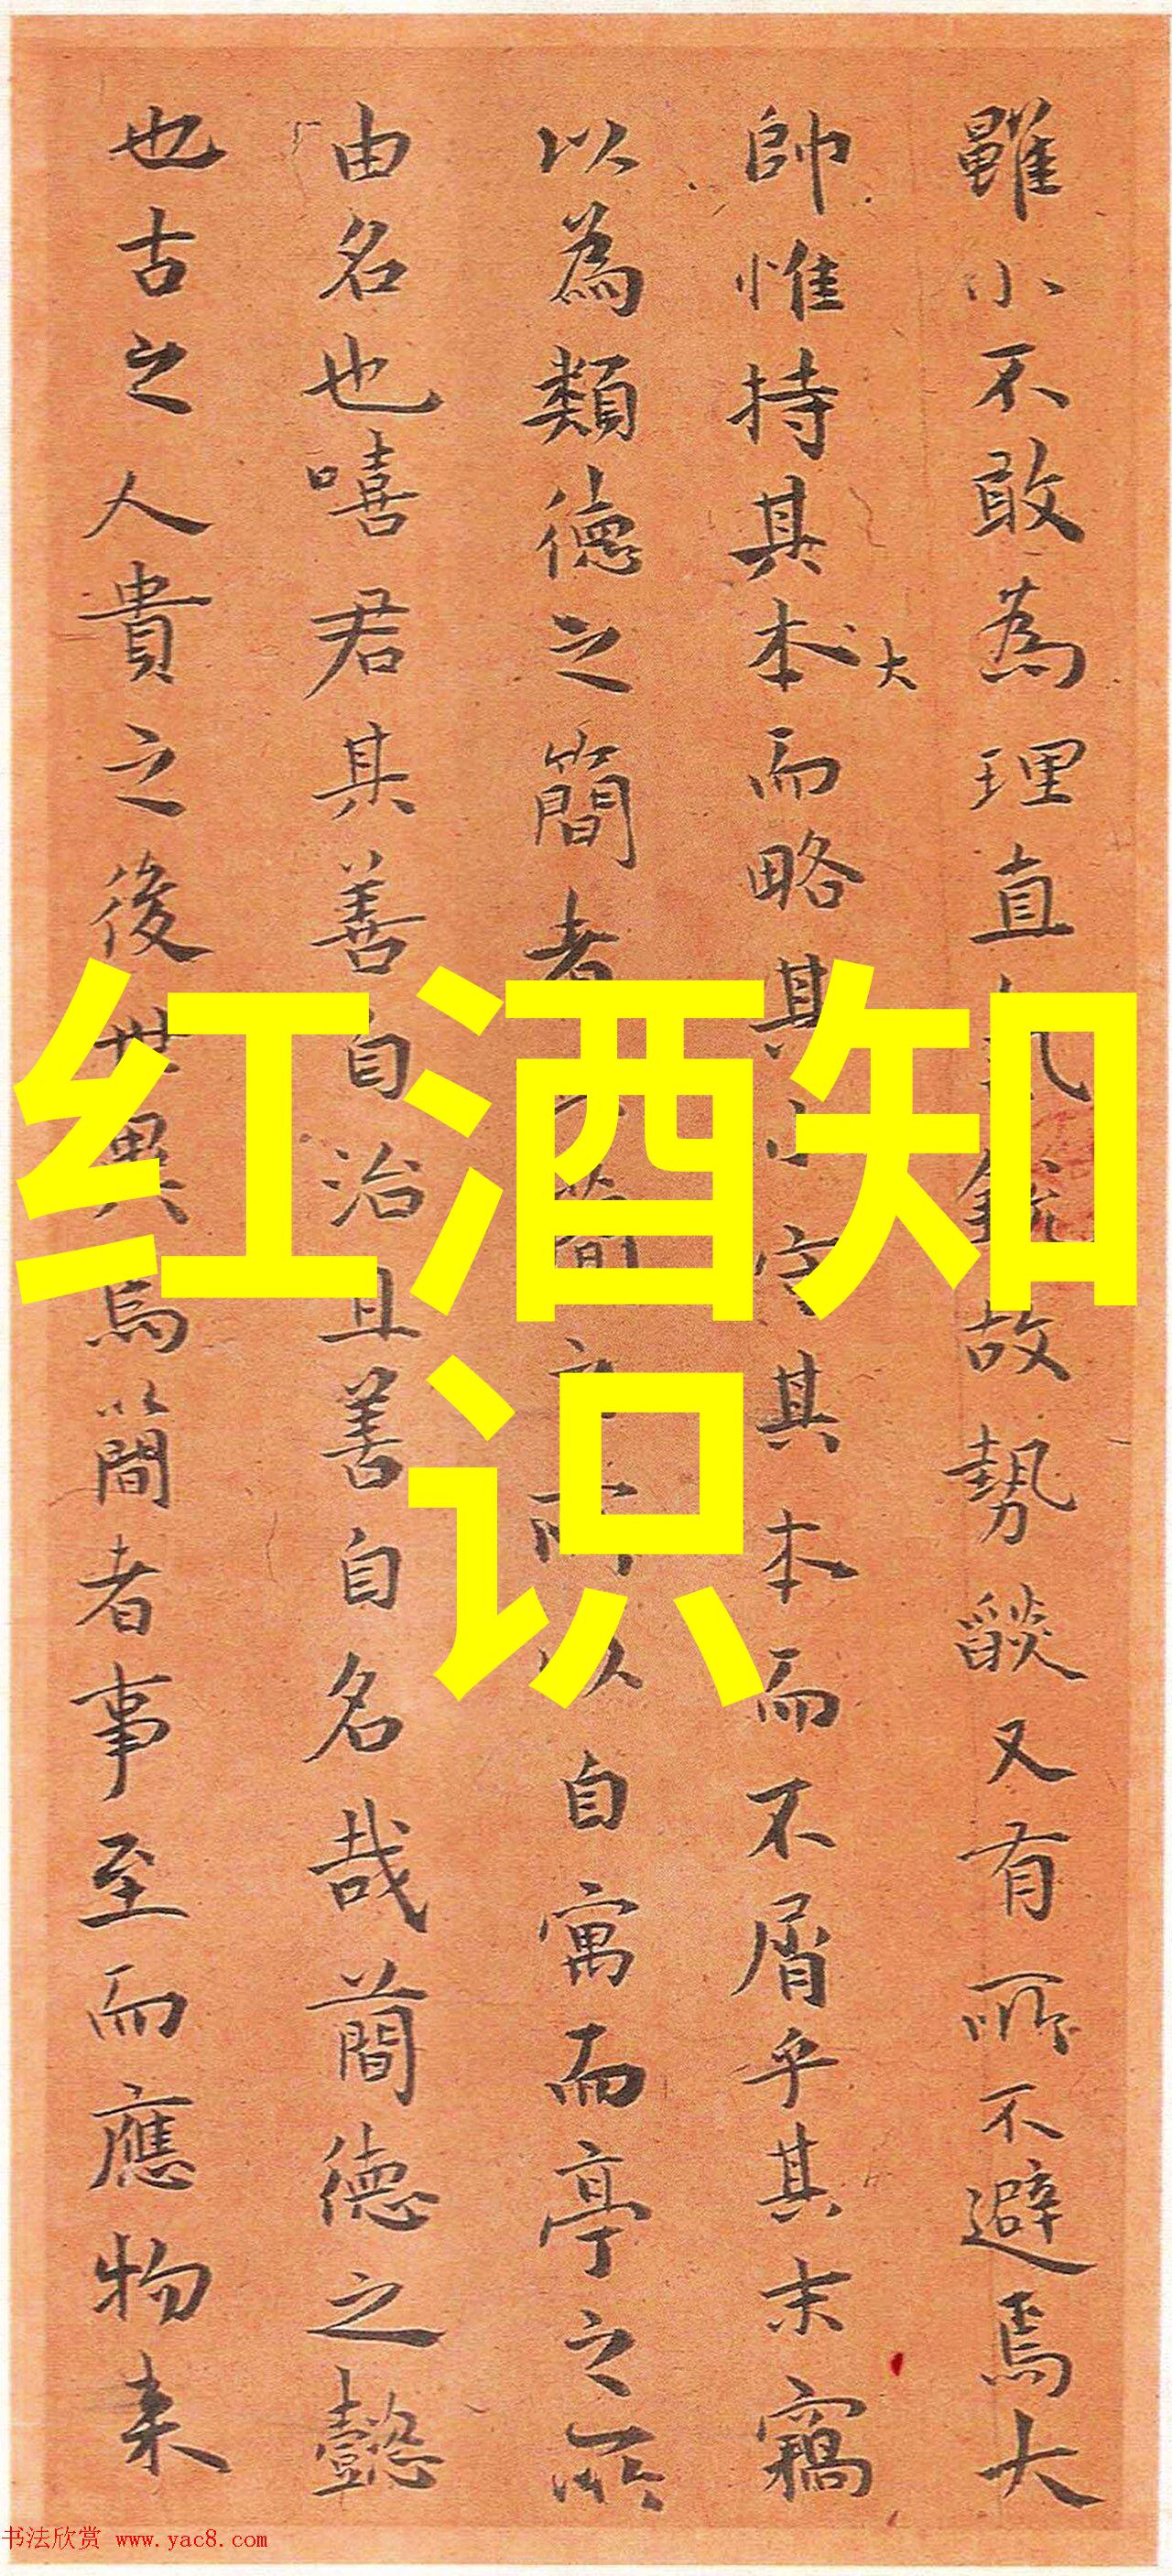 雖小不敢為理直氣銳故勢燄又有所不避焉大
帥惟持其本大而略其小守其本而不屑乎其末竊
以為類德之簡者簡而以自寓而亭之所
由名也嘻君其善自治且善自名哉簡德之懿
也古之人貴之後世異焉以簡者事至而應物来
红酒知
识
书法欣赏 www.yac8.com